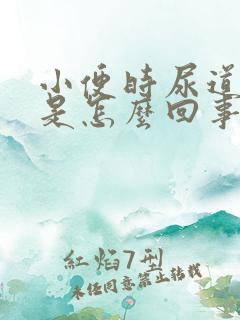 小便時尿道
是怎麼回事
紅焰7型
未經同意禁止轉載